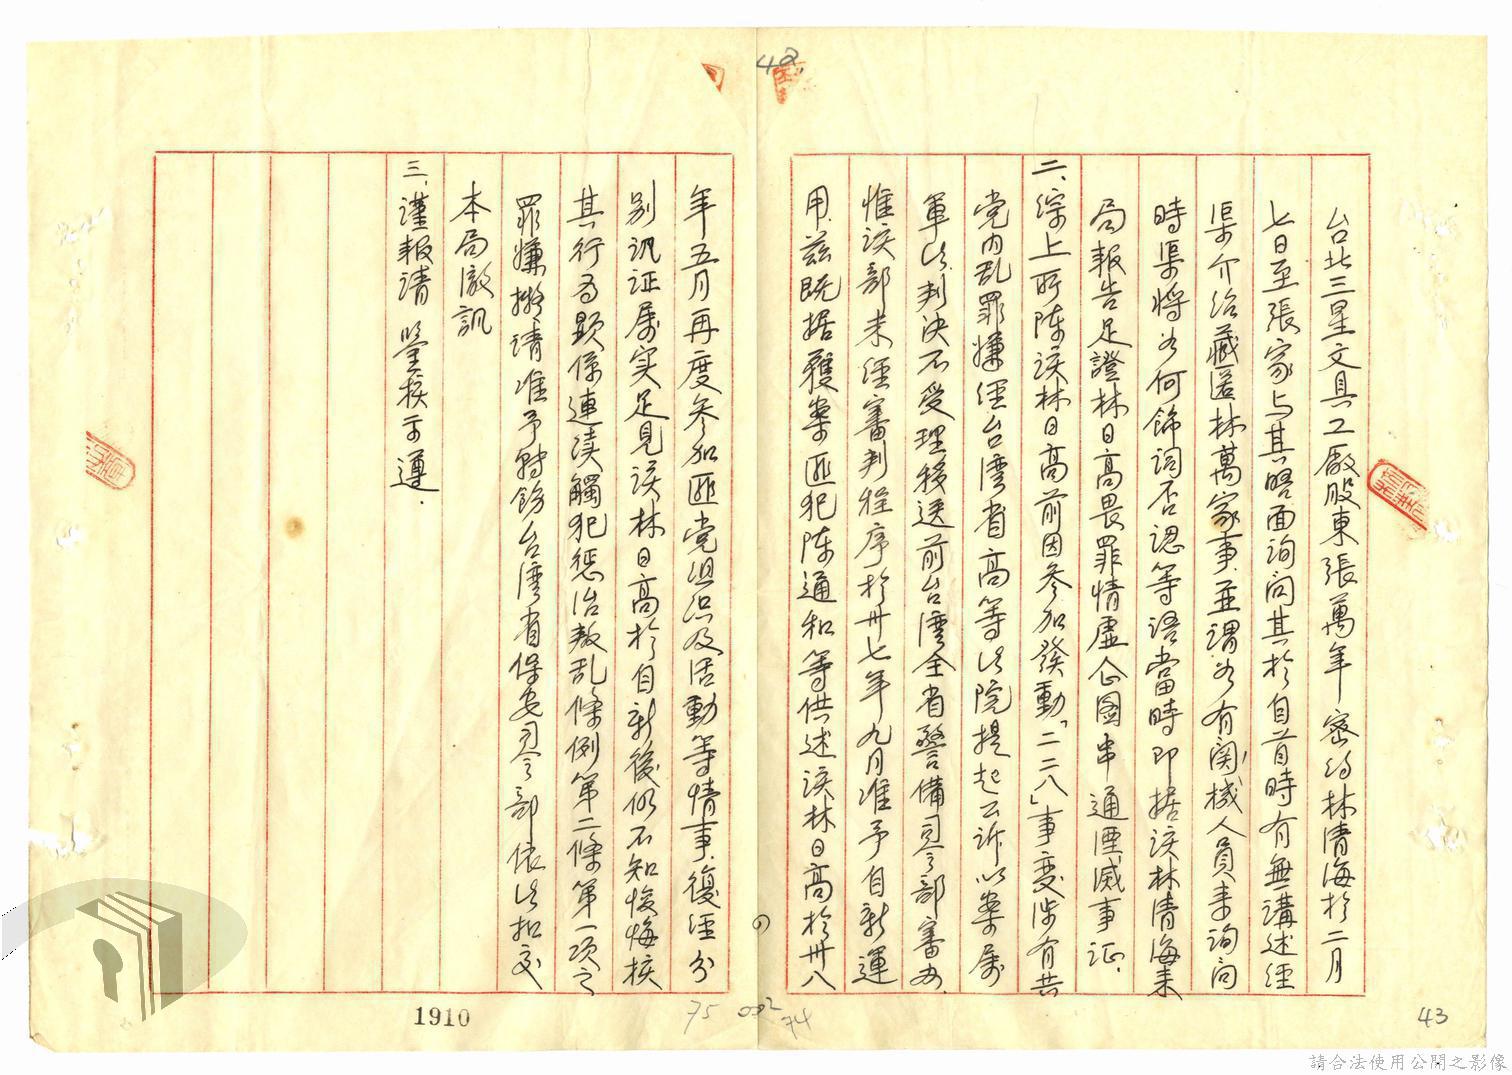 42
台北三星文具工廠股東張萬年密約林清海於二月
七日至張家与其晤面詢问其於自首時有無講述經
渠介绍藏匿林萬家事.並謂如有関機人員来詢问
時渠將如何餙詞否認等语當時即据该林清海来
局報告足證林日高畏罪情虚企圖串通湮滅事证.
二、综上所陳该林日高前因参加發動「二二八」事变涉有共
党内乱罪嫌经台湾省高等法院提起公诉以案属
軍法判决不受理移送前台湾全省警備司令部審办.
惟该部未经審判程序於卅七年九月准予自新運
用.兹既据獲案匪犯陳通和等供述该林日高於卅八
年五月再度参加匪党组织及活動等情事.復经分
别讯证属实足見该林日高於自新後仍不知悛悔核
其行为顯係連续觸犯惩治叛乱條例第二條第一项之
罪嫌擬请准予轉飭台湾省保安司令部依法扣交
本局徹訊
三、谨報请 鉴核示遵.
1910
75
74
43
請合法使用公開之影像